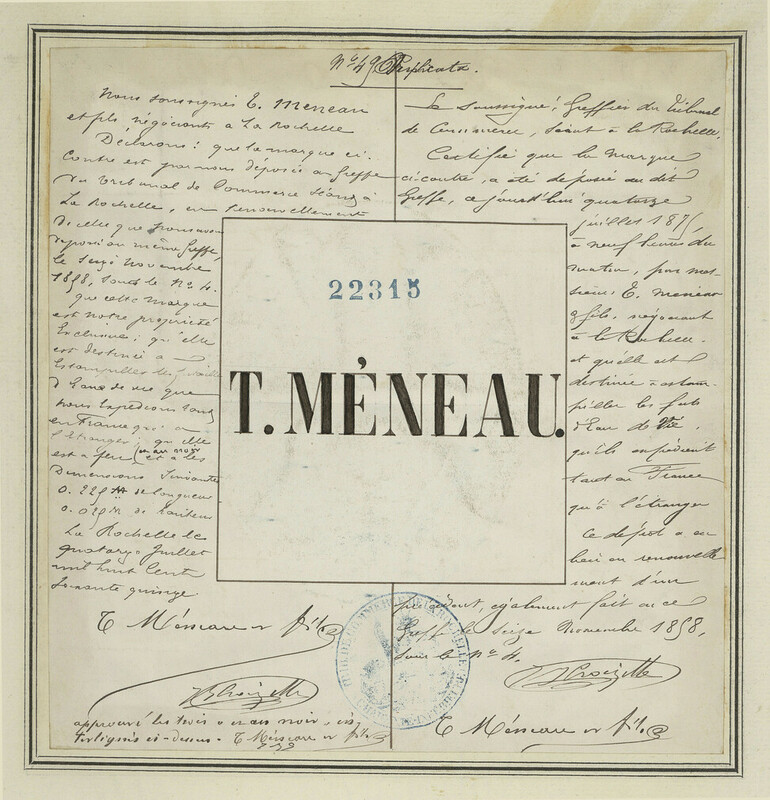 No 49 Duplicata.
Nous soussignés T. Meneau
et fils négociants à La Rochelle
Déclarons : que la marque ci-
contre est par nous déposée au Greffe
du Tribunal de Commerce séant à
La Rochelle, en renouvellement
de celle que nous avons
déposé au même Greffe,
le seize Novembre
1858, sous le No 4.
que cette marque
est notre propriété
Exclusive ; qu'elle
est destinée à
Estampiller les futailles
d'Eaux de vie que
nous Expédions tant
en France qu'à
l'étranger ; qu'elle
est à feu (ou au noir) et a les
Dimensions Suivantes
0.225 m de longueur
0.025 m de hauteur
La Rochelle le
quatorze Juillet
mil huit Cent
Soixante quinze
T Méneau & fils
B Croizette
approuvé les trois ou au noir, en
interlignes ci-dessus. T Méneau & fils
22315
T. MÉNEAU.
Le soussigné, Greffier du Tribunal
de Commerce, séant à la Rochelle.
Certifie que la marque
ci contre, a été déposée au dit
Greffe, ce jourd'hui quatorze
juillet 1875,
à neuf heures du
matin, par mes-
sieurs T. Meneau
& fils, négociant
à la Rochelle.
et qu'elle est
destinée à estam-
piller les futs
d'Eau de Vie,
qu'ils expédient
tant en France
qu'à l'étranger
Ce dépôt a eu
lieu en renouvelle
ment d'un
précédent, également fait en ce
Greffe le seize Novembre 1858,
sous le No 4.
B Croizette
T Méneau & fils